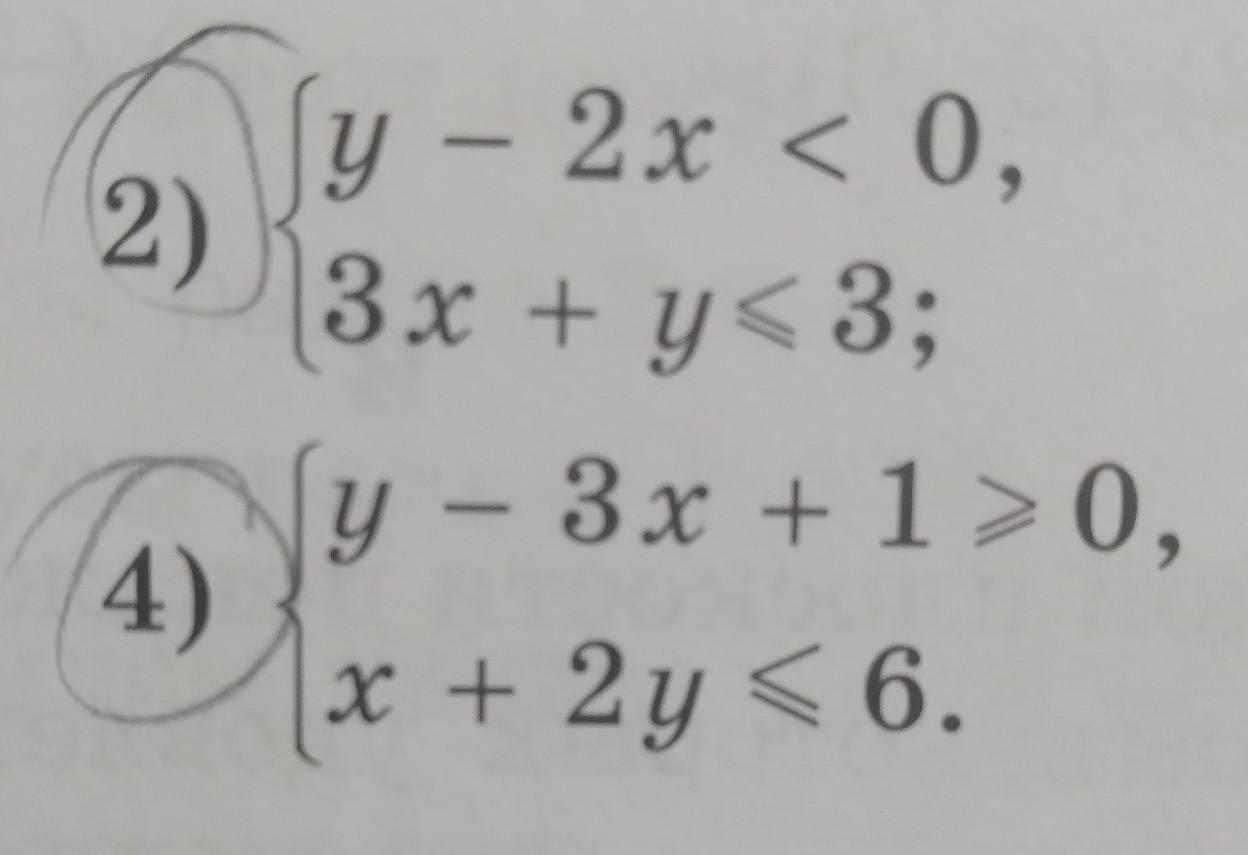 2) { y - 2x < 0,
3x + y ⩽ 3;
4) { y - 3x + 1 ⩾ 0,
x + 2y ⩽ 6.